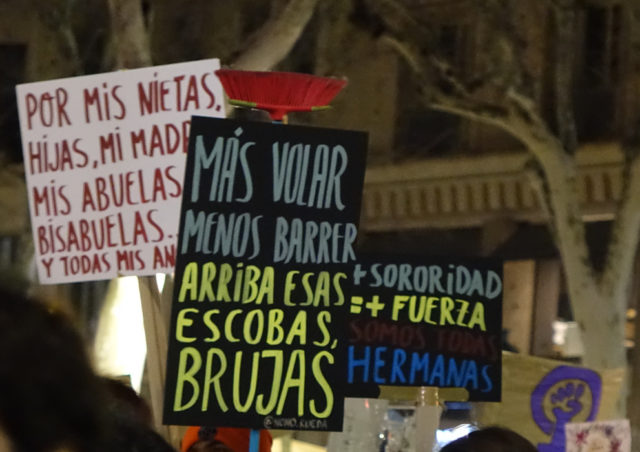 POR MIS NIETAS,
HIJAS, MI MADRE
MIS ABUELAS
BISABUELAS...
Y TODAS MIS AN
MÁS VOLAR
MENOS BARRER
ARRIBA ESAS
ESCOBAS,
BRUJAS
@NONO_RUEDA
+ SORORIDAD
=+ FUERZA
SOMOS TODAS
HERMANAS